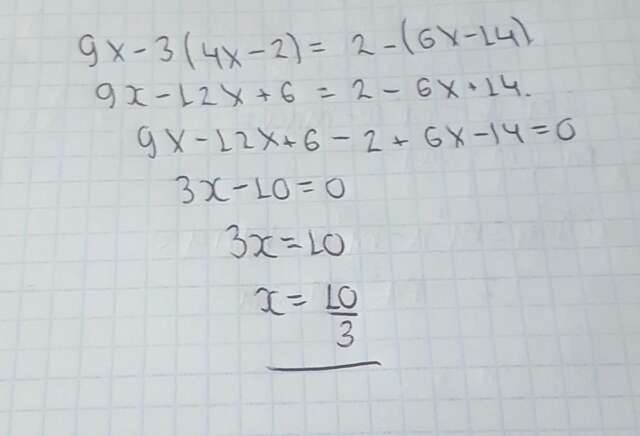 9x-3(4x-2)= 2-(6x-14)
9x-12x+6 = 2-6x+14.
9x-12x+6-2+6x-14=0
3x-10=0
3x=10
x=10/3